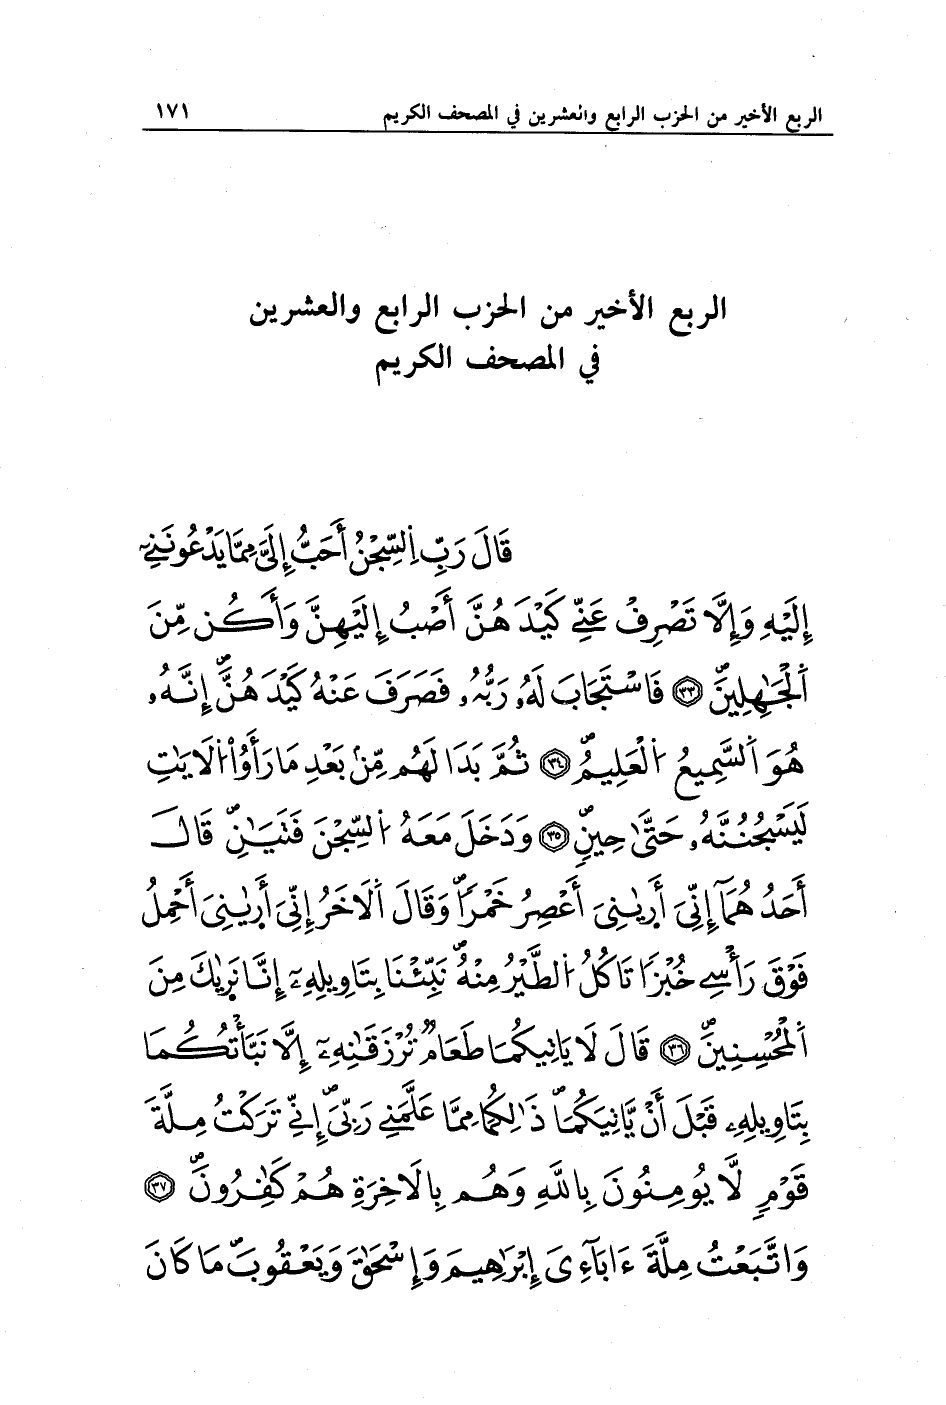 الربع الأخير من الحزب الرابع والعشرين في المصحف الكريم ١٧١
الربع الأخير من الحزب الرابع والعشرين
في المصحف الكريم
قَالَ رَبِّ اِ۬لسِّجْنُ أَحَبُّ إِلَيَّ مِمَّا يَدْعُونَنِےٓ
إِلَيْهِ وَإِلَّا تَصْرِفْ عَنِّے كَيْدَهُنَّ أَصْبُ إِلَيْهِنَّ وَأَكُن مِّنَ
اَ۬لْجَٰهِلِينَۖ ٣٣ فَاسْتَجَابَ لَهُۥ رَبُّهُۥ فَصَرَفَ عَنْهُ كَيْدَهُنَّۖ إِنَّهُۥ
هُوَ اَ۬لسَّمِيعُ اُ۬لْعَلِيمُۖ ٣٤ ثُمَّ بَدَا لَهُم مِّنۢ بَعْدِ مَا رَأَوُاْ اُ۬لَايَٰتِ
لَيَسْجُنُنَّهُۥ حَتَّىٰ حِينٖۖ ٣٥ وَدَخَلَ مَعَهُ اُ۬لسِّجْنَ فَتَيَٰنِۖ قَالَ
أَحَدُهُمَآ إِنِّيَ أَر۪ىٰنِيَ أَعْصِرُ خَمْراٗۖ وَقَالَ اَ۬لَاخَرُ إِنِّيَ أَر۪ىٰنِيَ أَحْمِلُ
فَوْقَ رَأْسِے خُبْزاٗ تَاكُلُ اُ۬لطَّيْرُ مِنْهُۖ نَبِّئْنَا بِتَاوِيلِهِۦٓ إِنَّا نَر۪ىٰكَ مِنَ
اَ۬لْمُحْسِنِينَۖ ٣٦ قَالَ لَا يَاتِيكُمَا طَعَامٞ تُرْزَقَٰنِهِۦٓ إِلَّا نَبَّأْتُكُمَا
بِتَاوِيلِهِۦ قَبْلَ أَنْ يَّاتِيَكُمَاۖ ذَٰلِكُمَا مِمَّا عَلَّمَنِے رَبِّيَۖ إِنِّے تَرَكْتُ مِلَّةَ
قَوْمٖ لَّا يُومِنُونَ بِاللَّهِ وَهُم بِالَاخِرَةِ هُمْ كَٰفِرُونَۖ ٣٧
وَاتَّبَعْتُ مِلَّةَ ءَابَآءِيَ إِبْرَٰهِيمَ وَإِسْحَٰقَ وَيَعْقُوبَۖ مَا كَانَ